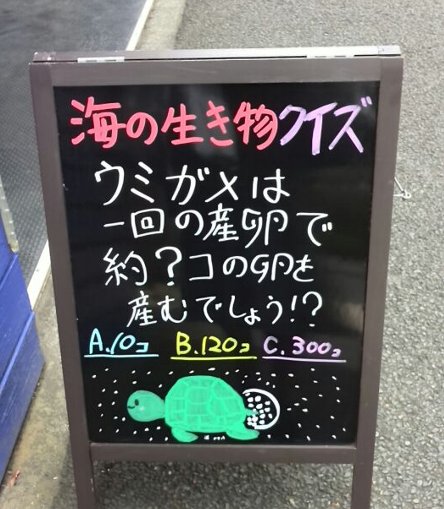 海の生き物クイズ
ウミガメは
一回の産卵で
約?コの卵を
産むでしょう!?
A.10コ B.120コ C.300コ